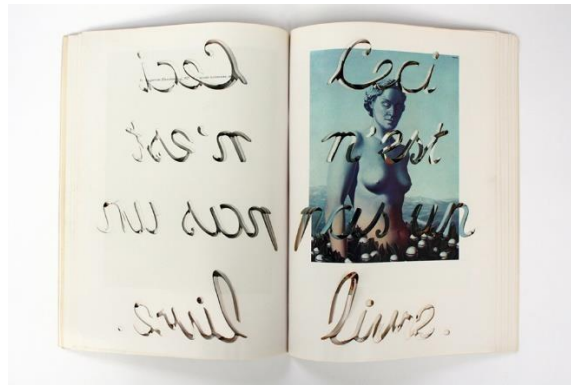 Ceci
n'est
pas un
livre.